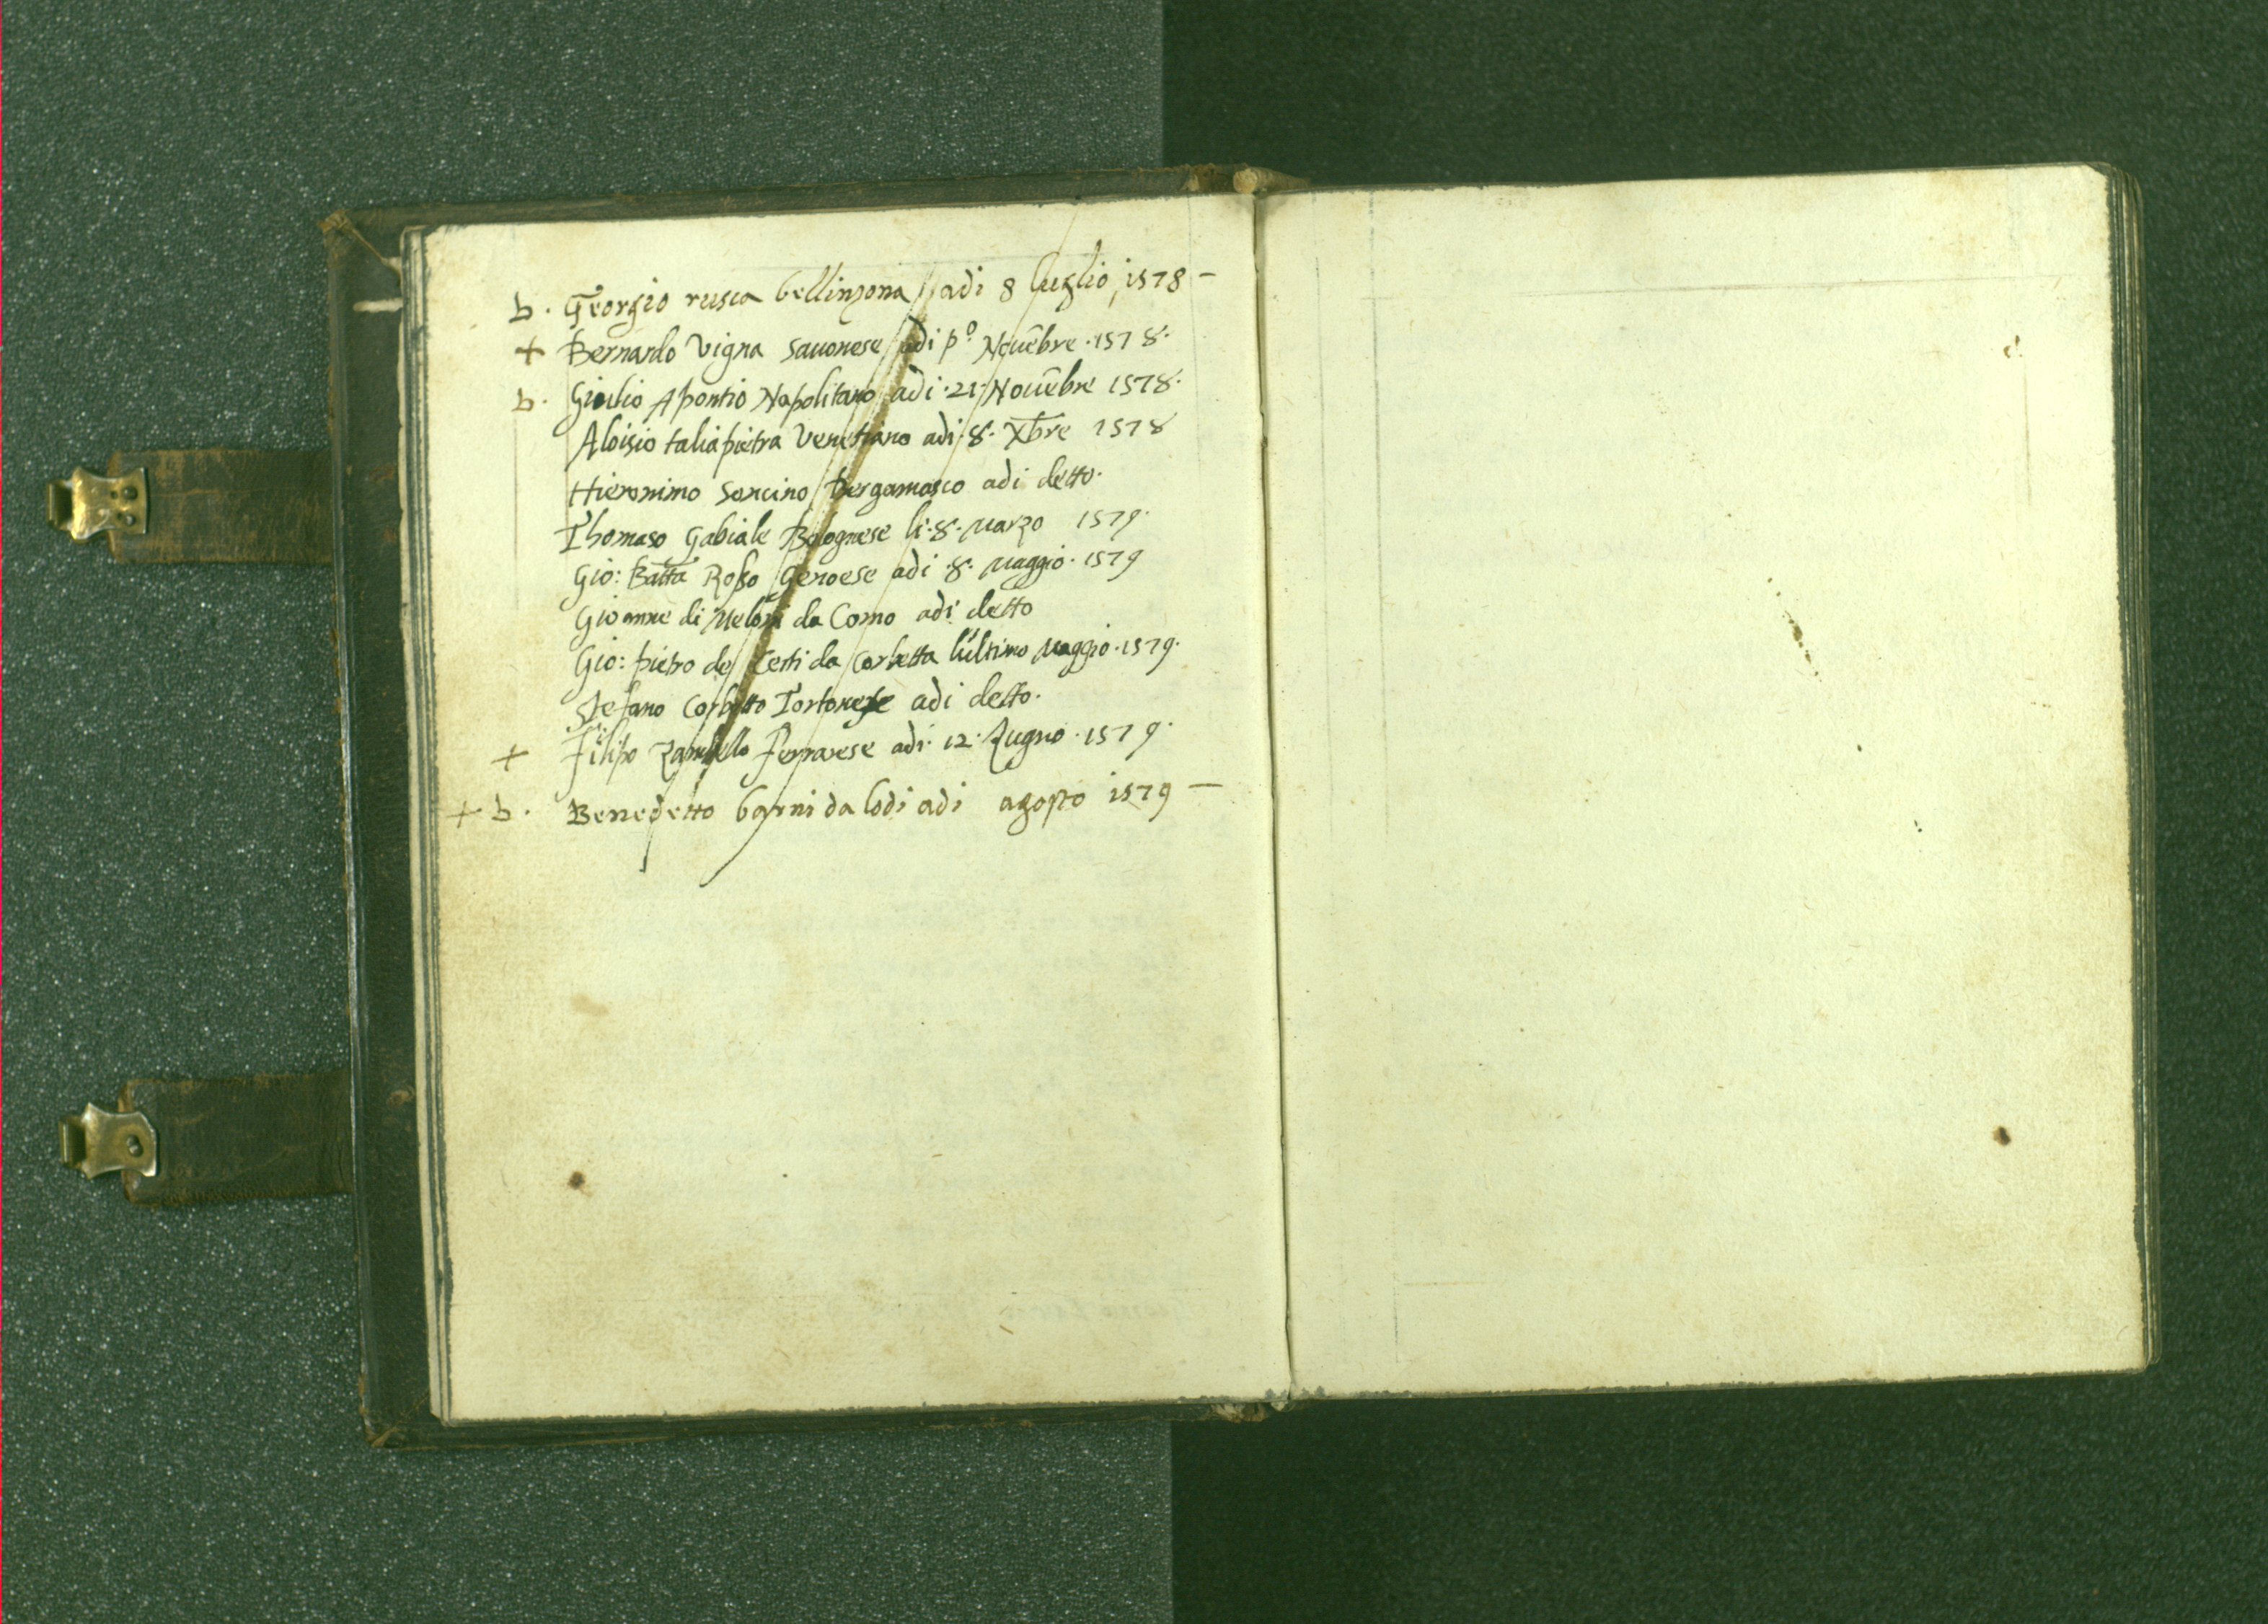 b. Georgio rusca bellinzona adi 8 luglio, 1578 –
+ Bernardo Vigna Sauonese adi pº Nouēbre · 1578 ·
b. Giulio Apontio Napolitano adi · 21 · Nouēbre 1578 ·
Aloisio taliapietra Venetiano adi · 8 · Xbre 1578
Hieronimo Soncino Bergamasco adi detto ·
Thomaso Gabiale Bolognese li · 8 · Marzo 1579 ·
Gio: Batta Rosso Genoese adi · 8 · Maggio · 1579
Gioanne di Meloni da Como adi detto
Gio: pietro de Cesti da Corbetta l'ultimo Maggio · 1579 ·
Stefano Corbetto Tortonese adi detto ·
+ Filipo Zambello ferrarese adi · 12 · Zugno · 1579 ·
+ b. Benedetto barni da lodi adi agosto 1579 —